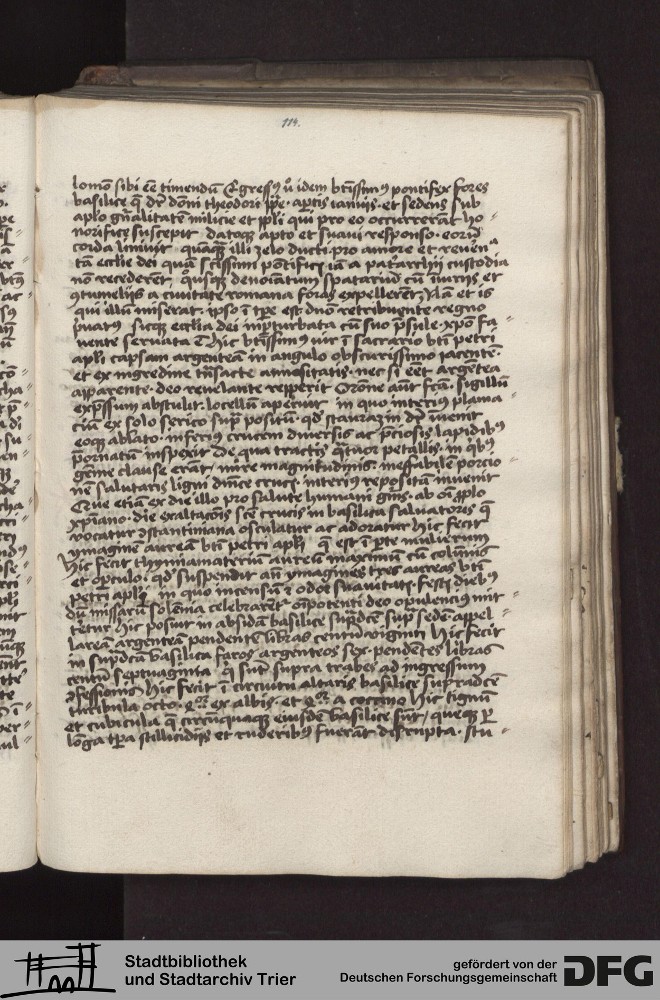 114.
lomō sibi eē timendū Egressꝰ ů idem btīssimꝰ pontifex fores
basilice q̄ dr̄ dōni theodori ppe · aptis ianuis · et sedens sub
aplo gn̄alitatē milicie et ppli qui pro eo occurrerāt ho⸗
norifice suscepit datoqꝫ apto et suaui responso · eorū
corda liniuit quāqꝫ illi zelo ducti pro amore et reuerē⸗
tā ecclie dei quā scissimi pontificꝭ iā a patriarchii custodia
nō recederent qousqꝫ denoīatum spatariū cū iuriis et
ꝯtumeliis a ciuitate romana foras expellerent Nā et is
qui illū miserat · ipso ī tpe est dn̄o retribuente regno
priuatꝰ sicqꝫ ecclia dei inpturbata cū suo psule xp̄o fa⸗
uente seruata ē Hic btīssimꝰ uir ī sacrario bti petri
apli capsam argenteā in angulo obscurissimo iacentē
et ex nigredine tn̄sacte annositatis · nec si eēt argentea
apparente · deo reuelante repperit Orōne aūt fcā · sigillū
expssum abstulit locellū aperuit in quo interius pluma⸗
ciū ex solo serico sup positū · qd̄ stauraxin dr̄ īuenit
eoqꝫ ablato · inferius crucem diuersis ac pciosis lapidibꝰ
pornatū inspexit de qua tractis qͣtuor petallis · in qͥbꝰ
gēme clause erāt / mire magnitudinis · ineffabilē porcio⸗
nē salutaris ligni dn̄ice crucꝭ interius repositū inuenit
Que etiā ex die illo pro salute humani gn̄is · ab oī pplo
xp̄iano · die exaltacōnis scē crucis in basilica saluatoris q̄
vocatur ꝯstantiniana osculatur ac adoratur hic fecit
ymaginē aureā bti petri apli q̄ est ī pte mulierum
Hic fecit thymiamateriū aureū maximū cū colūnis
et opculo · qd̄ suspendit an̄ ymagines tres aureas bti
petri apli in quo incensū ⁊ odor suauitatis · festꝭ diebꝰ
dū missarū solemia celebrarēt̃ om̄ipotenti deo opulencius mit⸗
tetur hic posuit in absidā basilice supdcē sup sedē appel⸗
lareā argenteā pendentē libras centū viginti hic fecit
in supdcā basilica faros argenteos sex · pendētes libras
centū septuaginta q̄ sūt supra trabes ad ingressum
ꝯfessionis Hic fecit ī circuitu altaris basilice supradcē
turibula octo · qͣr ex albis · et qͣr a coccino Hic tignū
et cubicula q̄ circūquaqꝫ eiusdē basilice sūt / queqꝫ p
lōga tpa stillicidijs et ruderibꝰ fuerāt disrupta · stu⸗
Stadtbibliothek
und Stadtarchiv Trier
gefördert von der
Deutschen Forschungsgemeinschaft
DFG